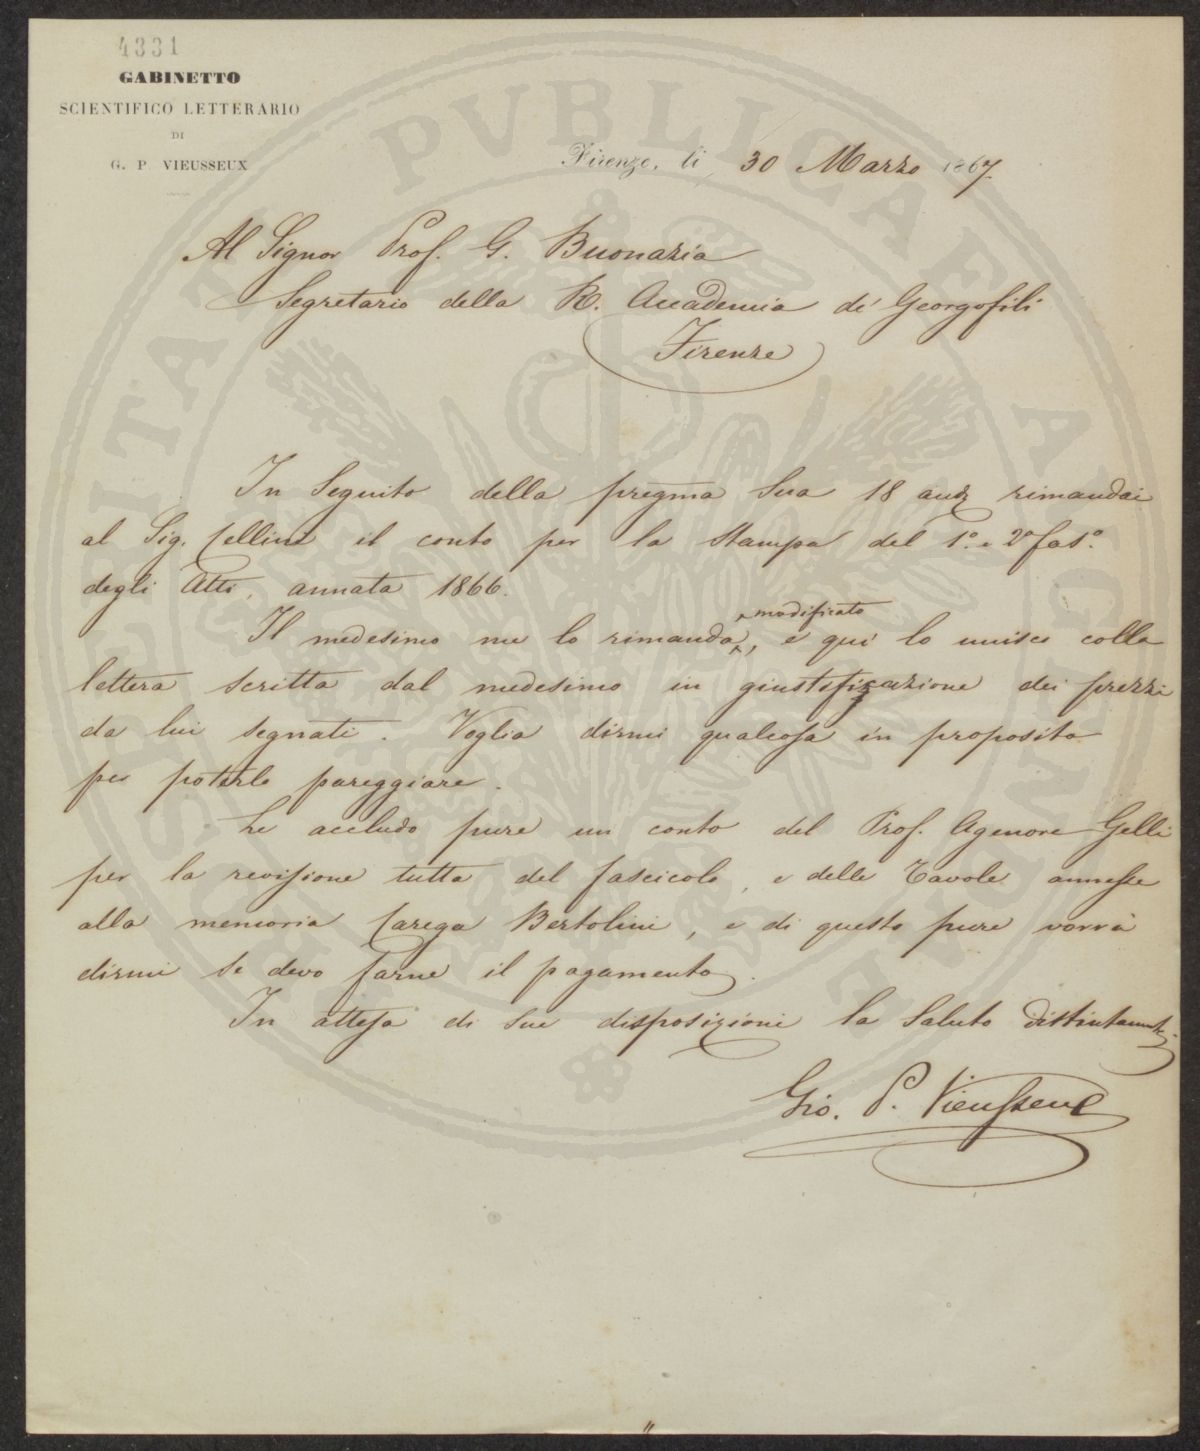 4331
GABINETTO
SCIENTIFICO LETTERARIO
DI
G. P. VIEUSSEUX
Firenze, li 30 Marzo 1867
Al Signor Prof. G. Buonazia
Segretario della R. Accademia de' Georgofili
Firenze
In Seguito della pregma Sua 18 andte rimandai
al Sig. Cellini il conto per la stampa del 1º. e 2º fasº.
degli Atti, annata 1866.
modificato
Il medesimo me lo rimanda, e qui lo unisco colla
lettera scritta dal medesimo in giustificazione dei prezzi
da lui segnati. Voglia dirmi qualcosa in proposito
per poterlo pareggiare.
Le accludo pure un conto del Prof. Agenore Gelli
per la revisione tutta del fascicolo, e delle Tavole annesse
alla memoria Carega Bertolini, e di questo pure vorrà
dirmi se devo farne il pagamento.
In attesa di sue disposizioni la Saluto distintamte.
Gio. P. Vieusseux
PUBLICAE